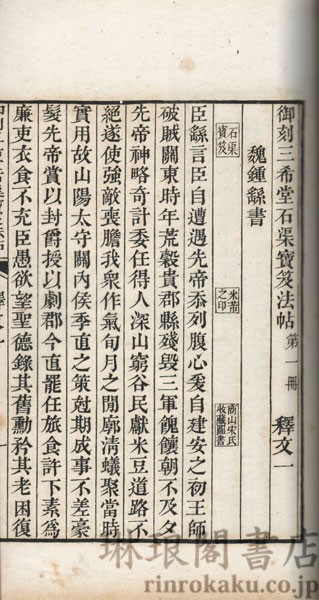 御刻三希堂石渠寶笈法帖 第一冊 釋文一
魏鍾繇書
石渠
寶笈
米芾
之印
商山宋氏
收藏圖書
臣繇言臣自遭遇先帝忝列腹心爰自建安之初王師
破賊關東時年荒穀貴郡縣殘毀三軍餽饟朝不及夕
先帝神略奇計委任得人深山窮谷民獻米豆道路不
絕遂使強敵喪膽我衆作氣旬月之間廓清蟻聚當時
實用故山陽太守關內侯季直之策尅期成事不差豪
髮先帝賞以封爵授以劇郡今直罷任旅食許下素爲
廉吏衣食不充臣愚欲望聖德錄其舊勳矜其老困復
琳琅閣書店
rinrokaku.co.jp